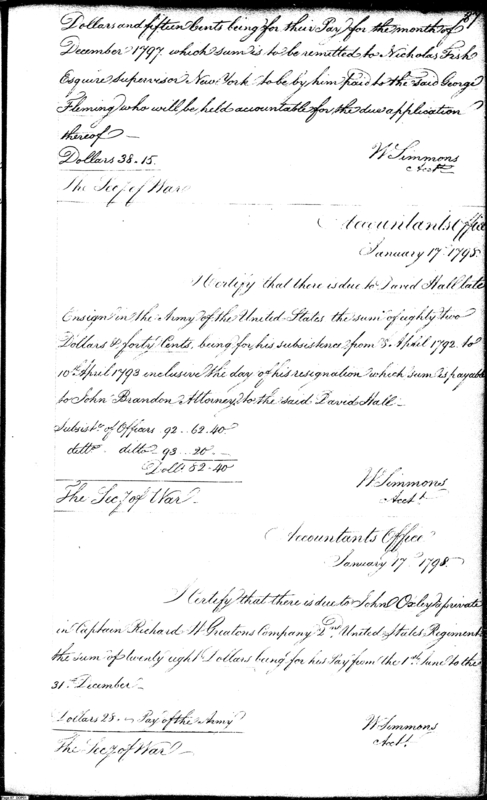 87
Dollars and fifteen Cents being for their Pay for the month of
December 1797. which sum is to be remitted to Nicholas Fish
Esquire Supervisor New York to be by him paid to the said George
Fleming who will be held accountable for the due application
thereof
Dollars 38.15.
W Simmons
Acct
The Secy of War
Accountants Office
January 17th 1798.
I Certify that there is due to David Hall late
Ensign in the Army of the United States the sum of eighty two
Dollars & forty Cents, being for his subsistence from 8 April 1792 to
10th April 1793 inclusive the day of his resignation which sum is payable
to John Brandon Attorney to the said David Hall
Subsistce of Officers 92.. 62.40
ditto ditto 93 .. 20 -
Dolls 82.40
W Simmons
Acctt
The Secy of War
Accountants Office
January 17th 1798
I Certify that there is due to John Oxley a private
in Captain Richard H Greatons Company 2nd United States Regiment
the sum of twenty eight Dollars being for his Pay from the 1st June to the
31st December
Dollars 28. Pay of the Army
W Simmons
Acctt
The Secy of War